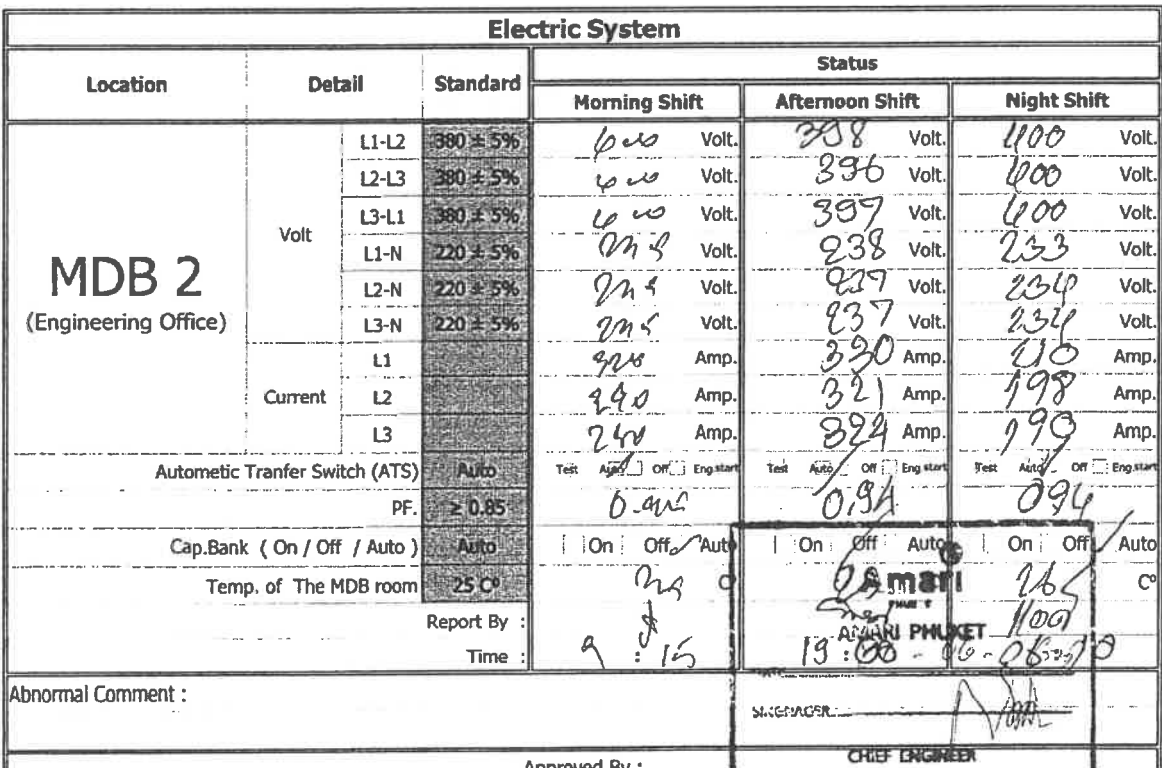 Electric System
Location Detail Standard Status
Morning Shift Afternoon Shift Night Shift
MDB 2
(Engineering Office)
Volt
L1-L2 380 ± 5% 400 Volt. 398 Volt. 400 Volt.
L2-L3 380 ± 5% 400 Volt. 396 Volt. 400 Volt.
L3-L1 380 ± 5% 400 Volt. 397 Volt. 400 Volt.
L1-N 220 ± 5% Volt. 238 Volt. 233 Volt.
L2-N 220 ± 5% Volt. 237 Volt. 234 Volt.
L3-N 220 ± 5% Volt. 237 Volt. 234 Volt.
Current
L1 Amp. 330 Amp. 210 Amp.
L2 Amp. 321 Amp. 198 Amp.
L3 Amp. 324 Amp. 199 Amp.
Autometic Tranfer Switch (ATS) Auto Test Auto Off Eng.start Test Auto Off Eng.start Test Auto Off Eng.start
PF. ≥ 0.85 0.94 094
Cap.Bank ( On / Off / Auto ) Auto On Off Auto On Off Auto On Off Auto
Temp. of The MDB room 25 C° C° amari 26 C°
Report By : AMARI PHUKET
Time : 9 : 15 19 : 00
Abnormal Comment :
CHIEF ENGINEER
Approved By :